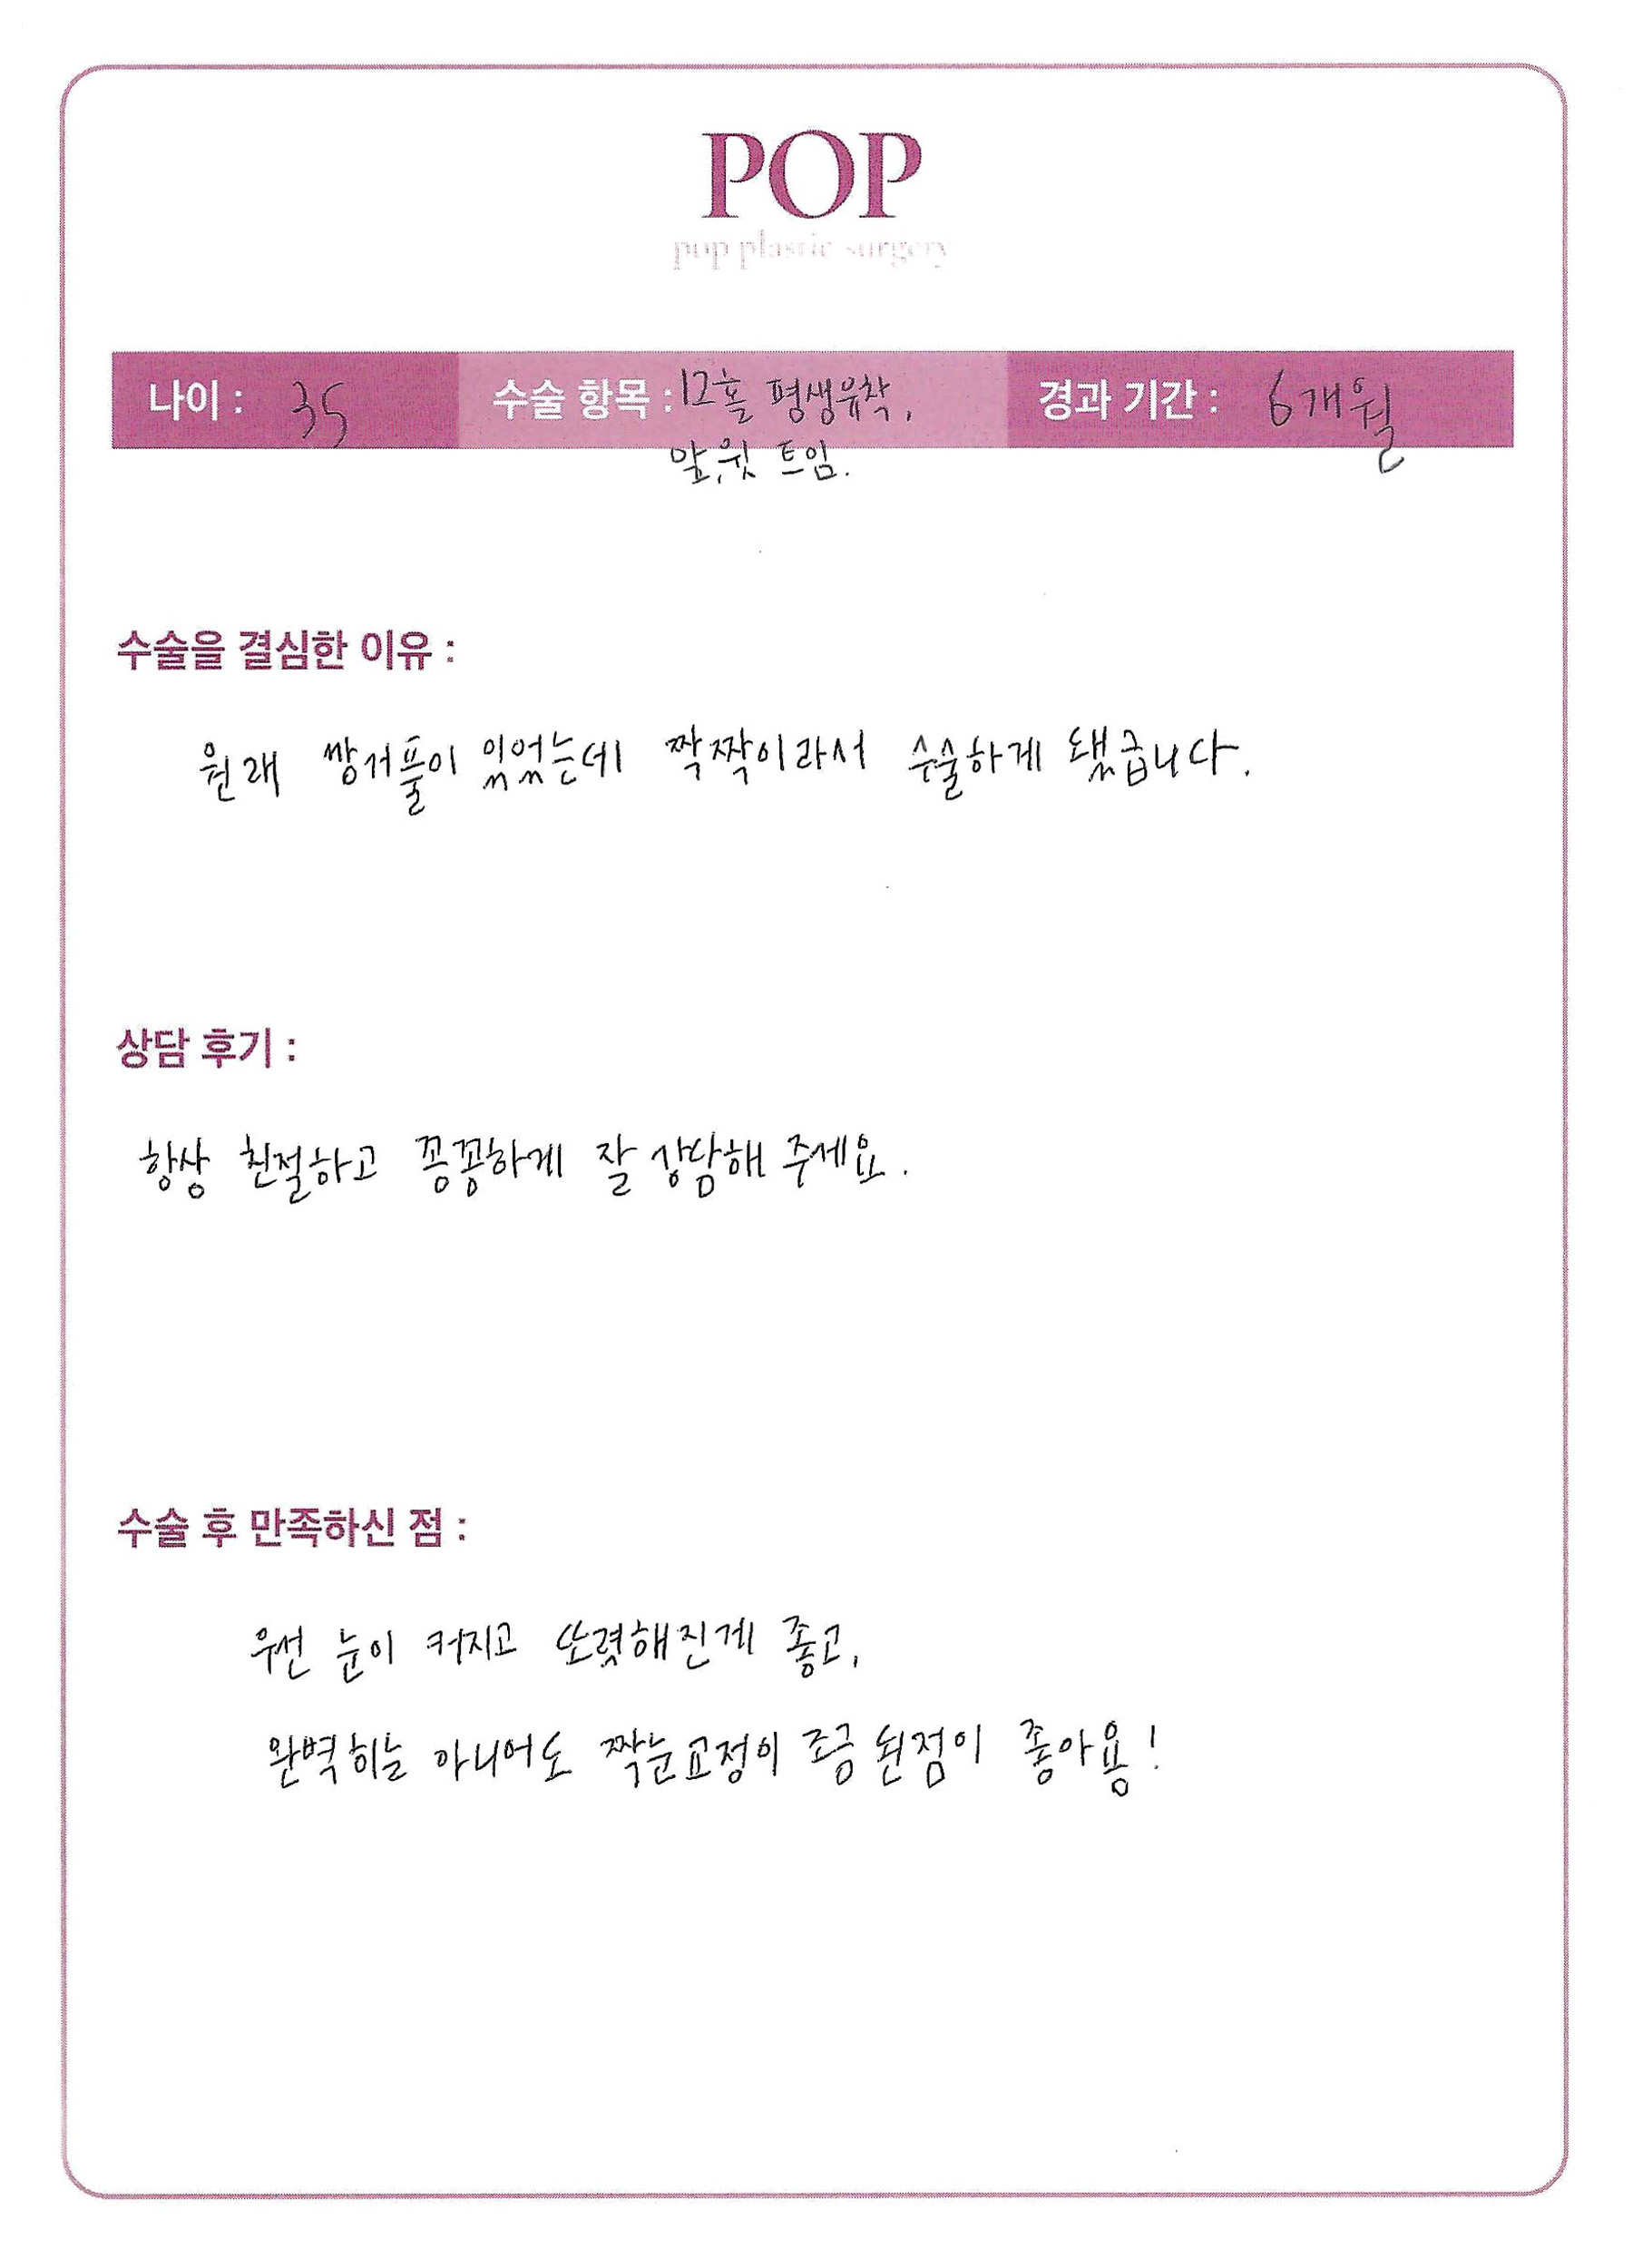 POP
pop plastic surgery
나이 : 35 수술 항목 : 12홀 평생유착, 경과 기간 : 6개월
앞,윗 트임.
수술을 결심한 이유 :
원래 쌍거풀이 있었는데 짝짝이라서 수술하게 됐급니다.
상담 후기 :
항상 친절하고 꼼꼼하게 잘 상담해 주세요.
수술 후 만족하신 점 :
우선 눈이 커지고 또렷해진게 좋고,
완벽히는 아니어도 짝눈교정이 조금 된점이 좋아용!